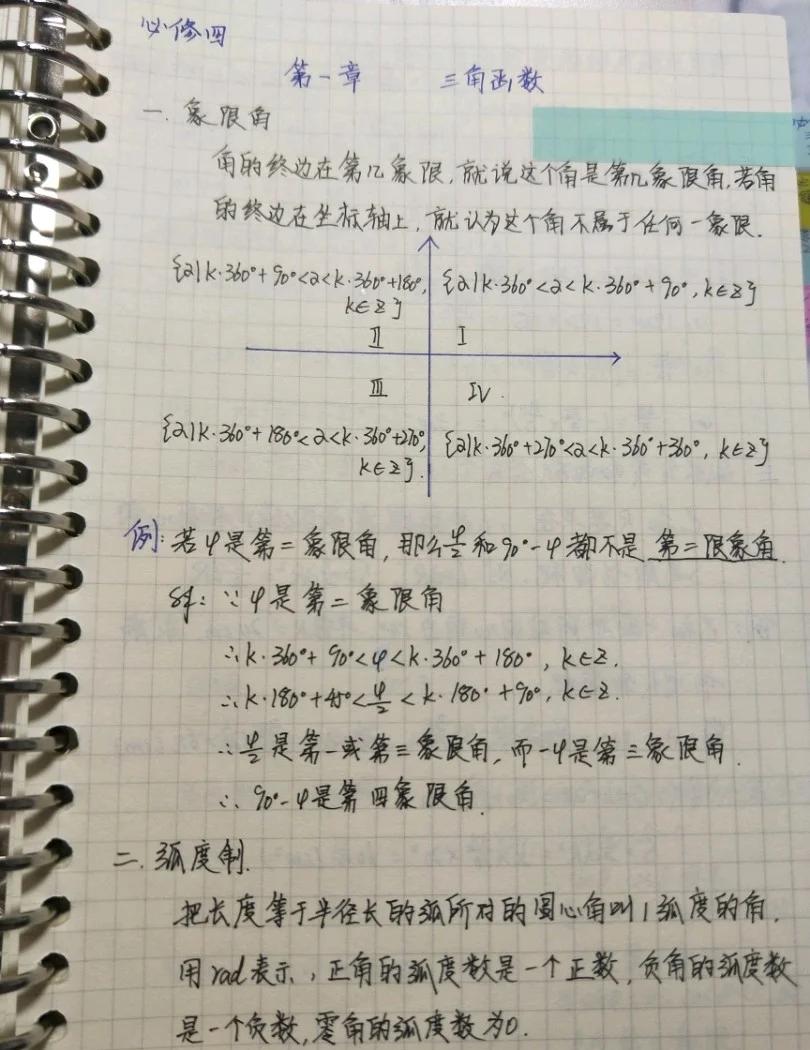 必修四
第一章 三角函数
一. 象限角
角的终边在第几象限,就说这个角是第几象限角,若角
的终边在坐标轴上,就认为这个角不属于任何一象限.
{α|k·360°+90°<α<k·360°+180°, {α|k·360°<α<k·360°+90°,k∈Z}
k∈Z}
Ⅱ Ⅰ
Ⅲ Ⅳ
{α|k·360°+180°<α<k·360°+270°, {α|k·360°+270°<α<k·360°+360°, k∈Z}
k∈Z}.
例: 若φ是第二象限角,那么φ/2和90°-φ都不是 第二限象角.
Sf: ∵φ是第二象限角
∴k·360°+90°<φ<k·360°+180°, k∈Z.
∴k·180°+45°<φ/2<k·180°+90°, k∈Z.
∴φ/2是第一或第三象限角,而-φ是第三象限角.
∴90°-φ是第四象限角.
二. 弧度制.
把长度等于半径长的弧所对的圆心角叫1弧度的角.
用rad表示,正角的弧度数是一个正数,负角的弧度数
是一个负数,零角的弧度数为0.